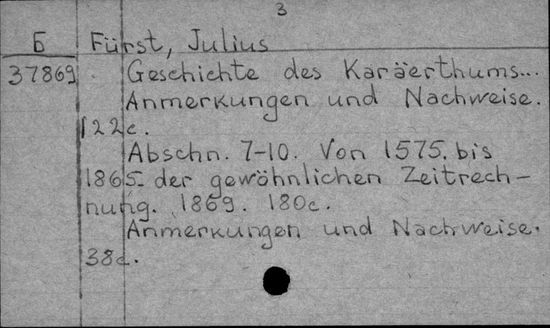 3
Б Fürst, Julius
37869 Geschichte des Karäerthums...
Anmerkungen und Nachweise.
122c.
Abschn. 7-10. Von 1575. bis
1865. der gewöhnlichen Zeitrech-
nung. 1869. 180c.
Anmerkungen und Nachweise.
38c.